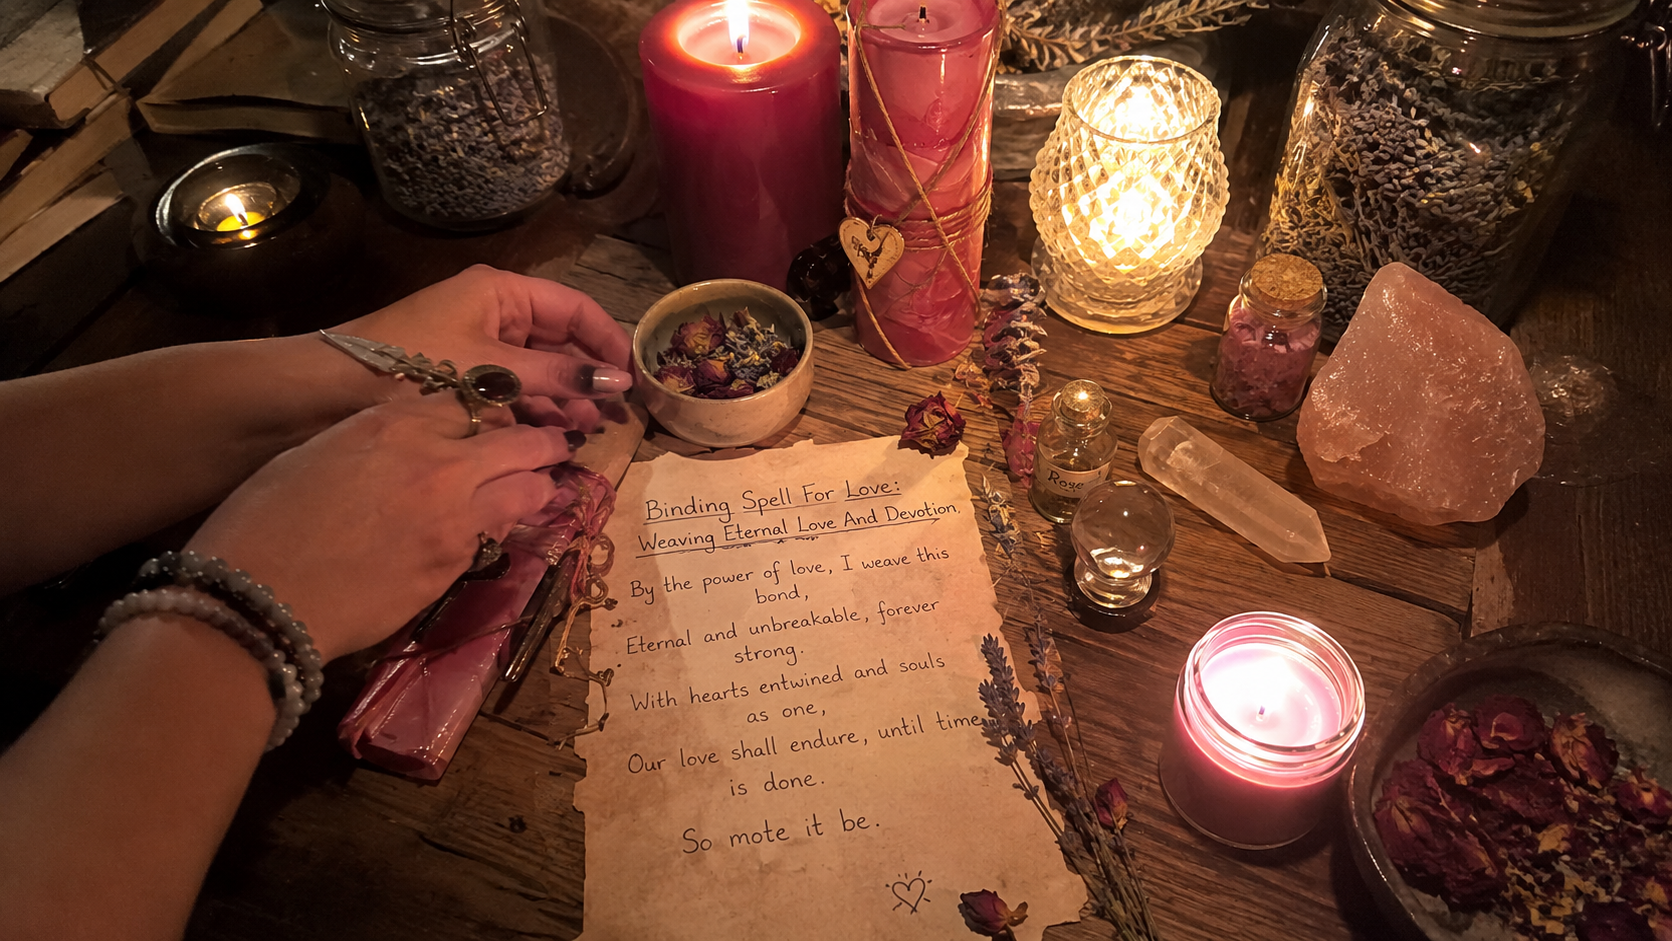 Binding Spell For Love:
Weaving Eternal Love And Devotion.
By the power of love, I weave this
bond,
Eternal and unbreakable, forever
strong.
With hearts entwined and souls
as one,
Our love shall endure, until time
is done.
So mote it be.
Rose